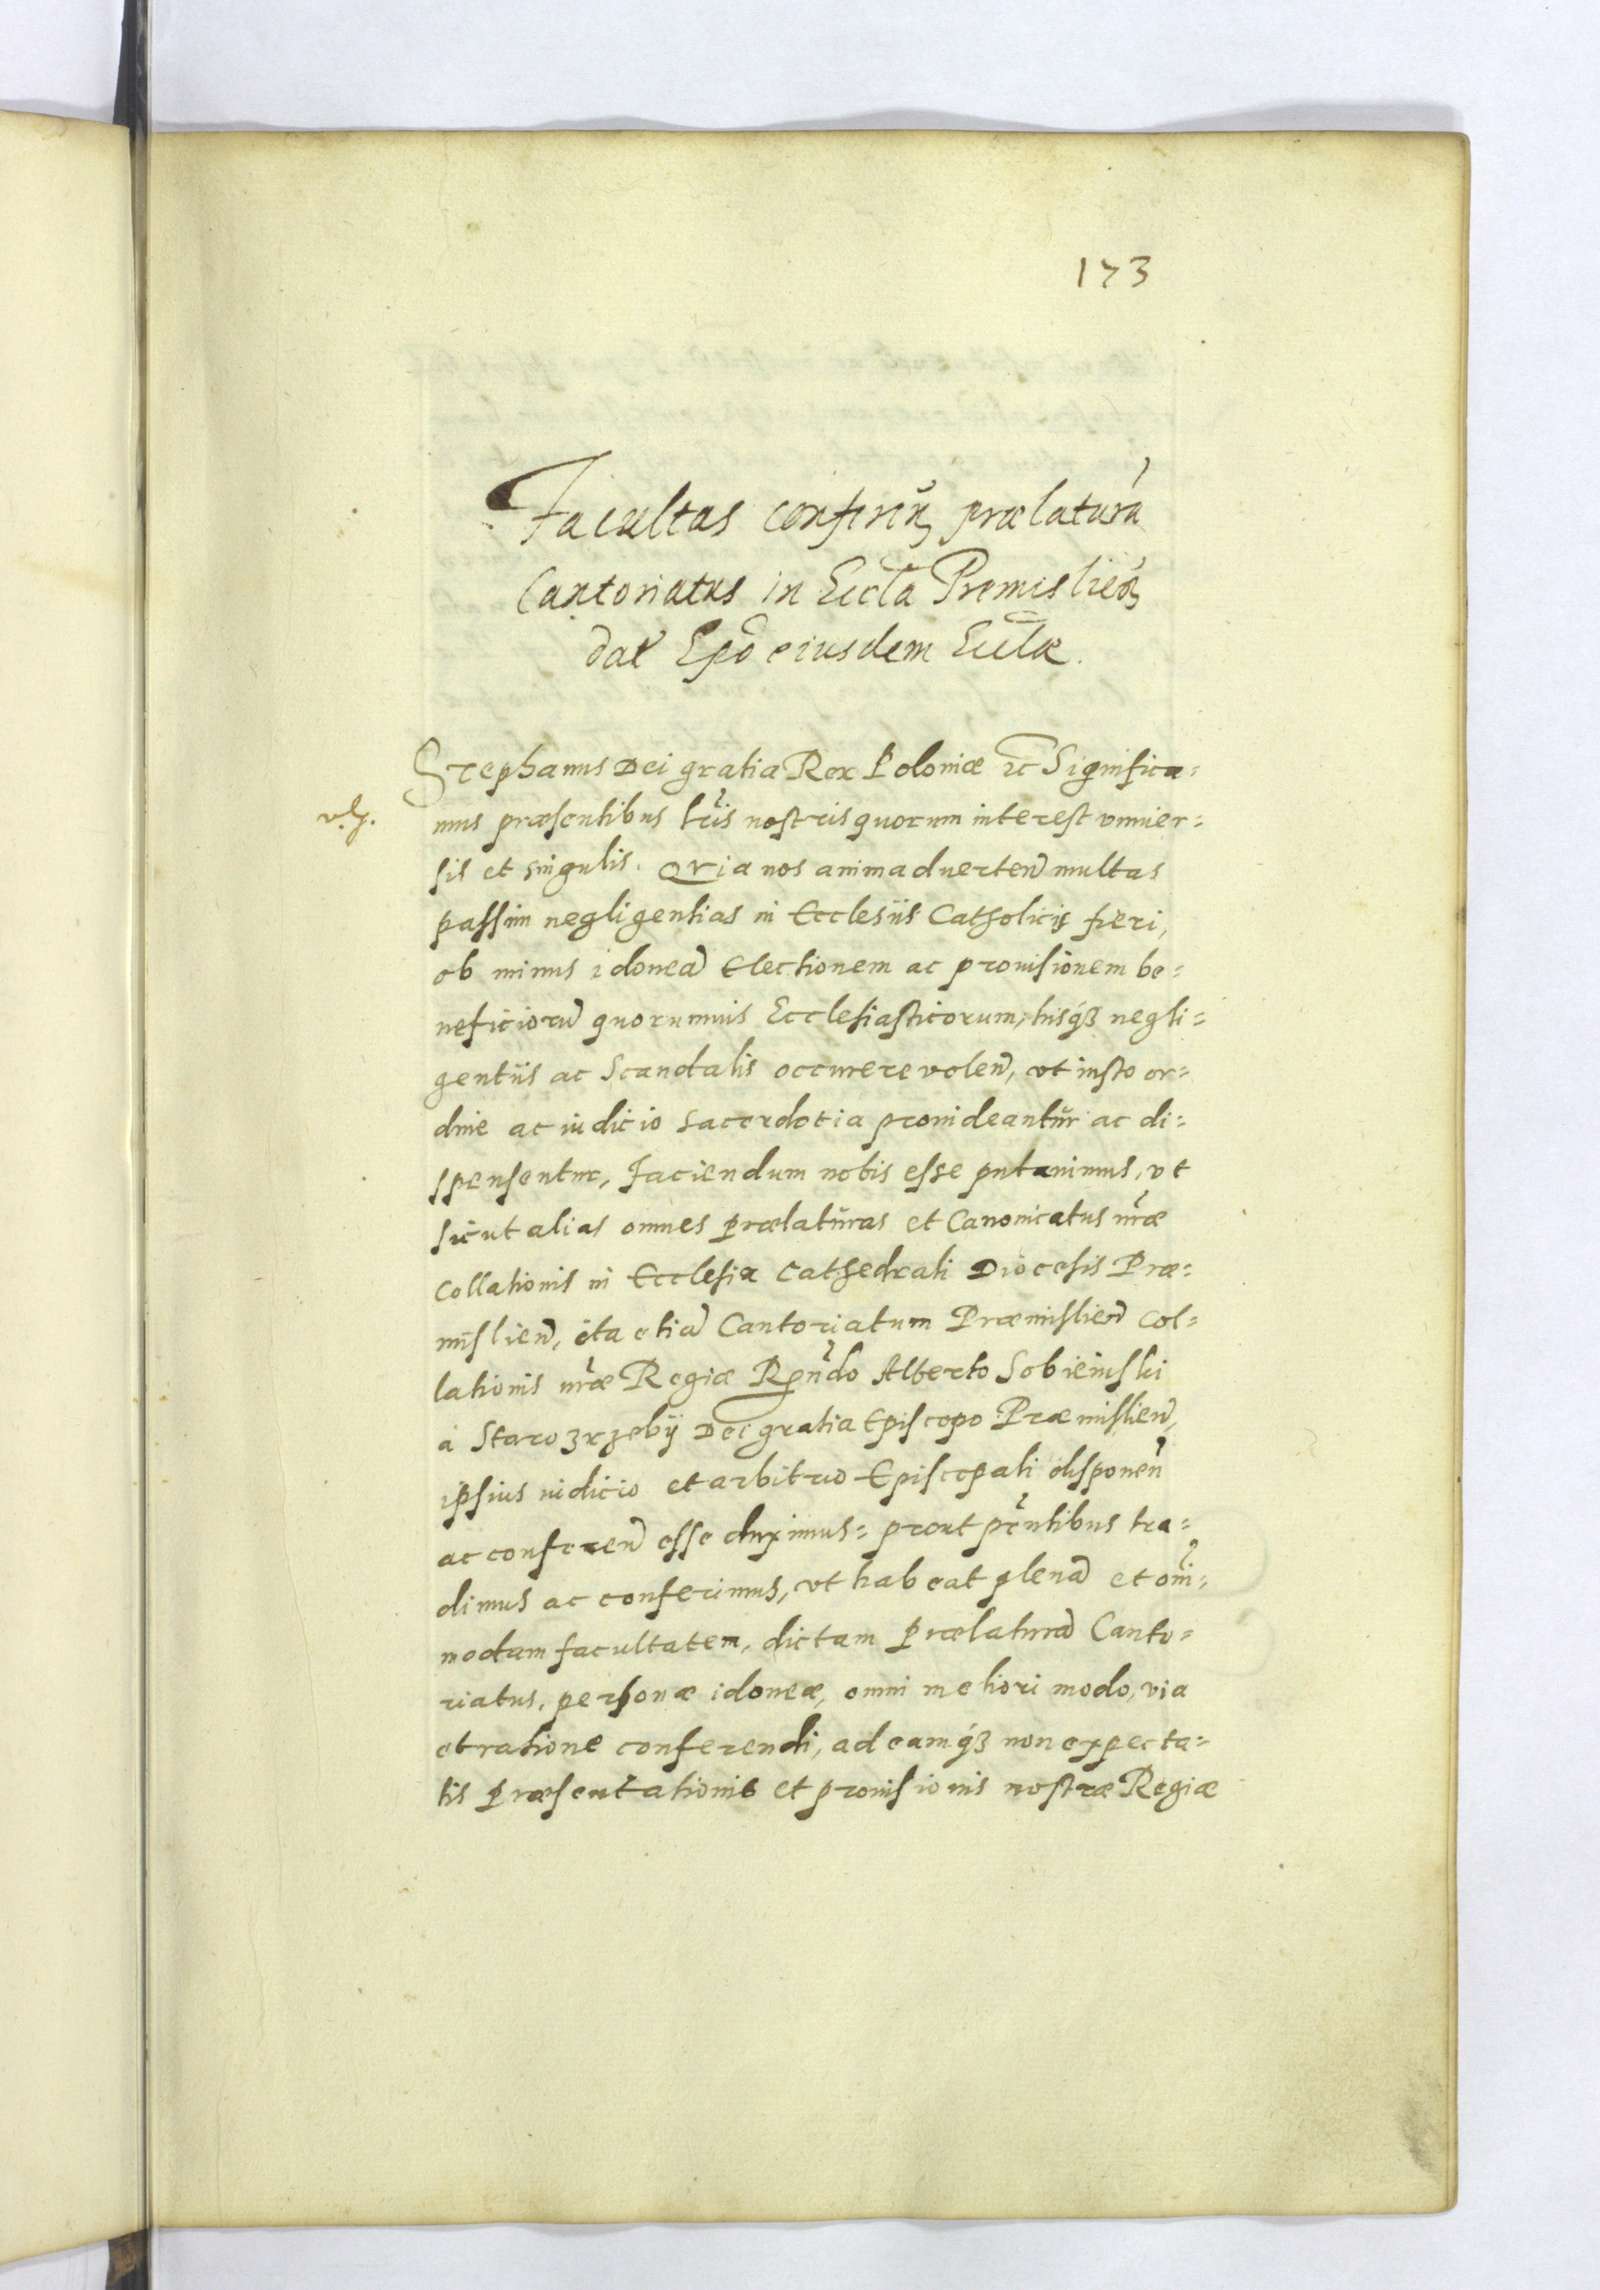 173
Facultas conferen̄ prælaturā
Cantoriatus in Eccla Premislien̄
dat Epō eiusdem Ecclæ.
Stephanus Dei gratia Rex Poloniæ etc Significa=
mus præsentibus lr̄is nostris quorum interest vniuer=
sis et singulis. Qvia nos animaduerten̄ multas
passim negligentias in Ecclesiis Catholicis fieri,
ob minus idoneā Electionem ac prouisionem be=
neficiorū quorumuis Ecclesiasticorum, hisq́ꝫ negli=
gentiis ac Scandalis occurrere volen̄, vt iusto or=
dine ac iudicio sacerdotia prouideantur ac di=
spensentur, faciendum nobis esse putauimus, vt
sicut alias omnes prælaturas et Canonicatus nr̄æ
Collationis in Ecclesia Cathedrali Diocesis Præ=
mislien̄, ita etiā Cantoriatum Præmislien̄ Col=
lationis nr̄æ Regiæ Rn̄do Alberto Sobieiuski
à Starozrzebij Dei gratia Episcopo Præmislien̄,
ipsius iudicio et arbitrio Episcopali disponen̄
ac conferen̄ esse duximus= prout pn̄tibus tra=
dimus ac conferimus, vt habeat plenā et om̄i=
modam facultatem, dictam Prælaturā Canto=
riatus, personæ idoneæ, omni meliori modo, via
et ratione conferendi, ad eamq́ꝫ non expecta=
tis præsentationis et prouisionis nostræ Regiæ